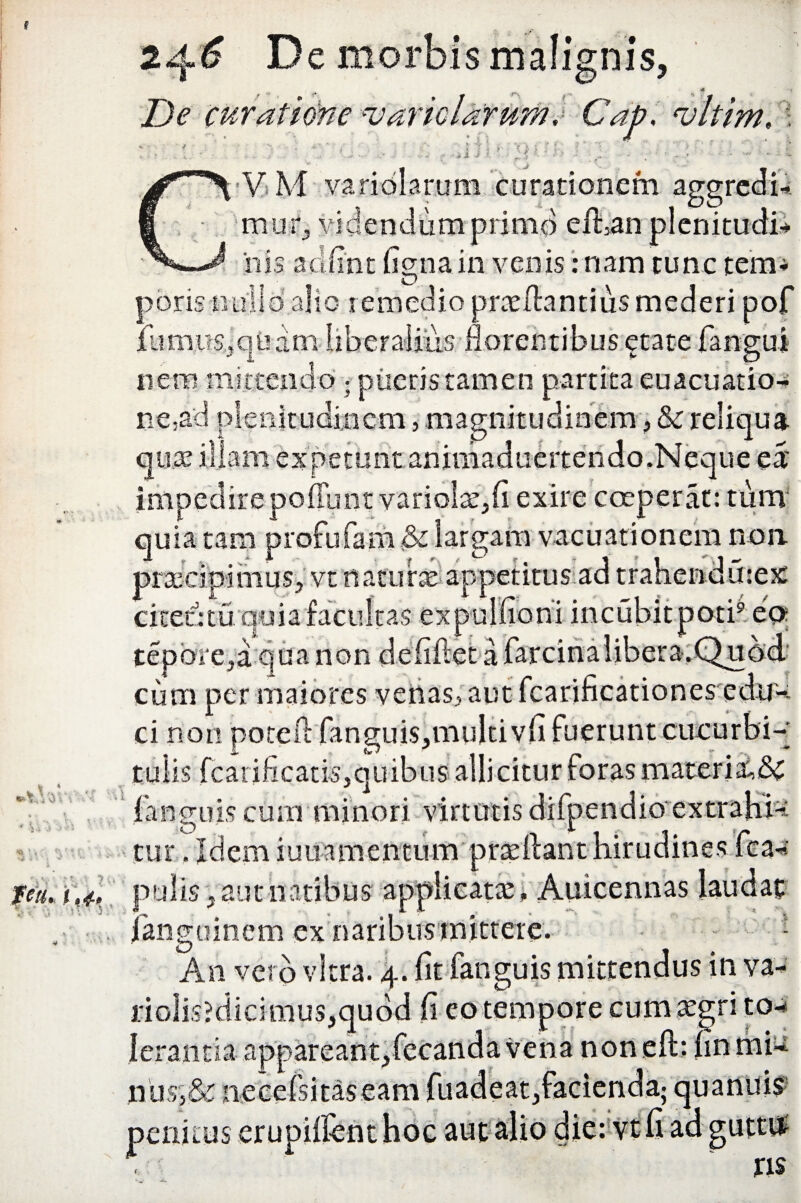 246 De morbis malignis,
De curatione variolarum. Cap. vltim.
CVM variolarum curationem aggredi-
mur, videndum primò eſt, an plenitudi-
nis adſint ſigna in venis: nam tunc tem-
poris nullo alio remedio præſtantius mederi poſ
ſumus, quàm liberaliùs florentibus ętate ſangui
nem mittendo; pueris tamen partita euacuatio-
ne, ad plenitudinem, magnitudinem, & reliqua
quæ illam expetunt animaduertendo. Neque eā
impedire poſſunt variolæ, ſi exire cœperāt: tùm
quia tam profuſam & largam vacuationem non
præcipimus, vt naturæ appetitus ad trahendū: ex
citet: tū quia facultas expulſioni incūbit potiꝰ eo
tēpore, à qua non deſiſtet à ſarcina libera. Quòd
cùm per maiores venas, aut ſcarificationes edu-
ci non poteſt ſanguis, multi vſi fuerunt cucurbi-
tulis ſcarificatis, quibus allicitur foras materia, &
ſanguis cum minori virtutis diſpendio extrahi-
tur. Idem iuuamentum præſtant hirudines ſca-
feu. 1.4. pulis, aut natibus applicatæ. Auicennas laudat
ſanguinem ex naribus mittere.
An verò vltra. 4. ſit ſanguis mittendus in va-
riolis? dicimus, quòd ſi eo tempore cum ægri to-
lerantia appareant, ſecanda vena non eſt: ſin mi-
nus, & neceſsitas eam ſuadeat, facienda; quanuis
penitus erupiſſent hoc aut alio die: vt ſi ad guttu
ris